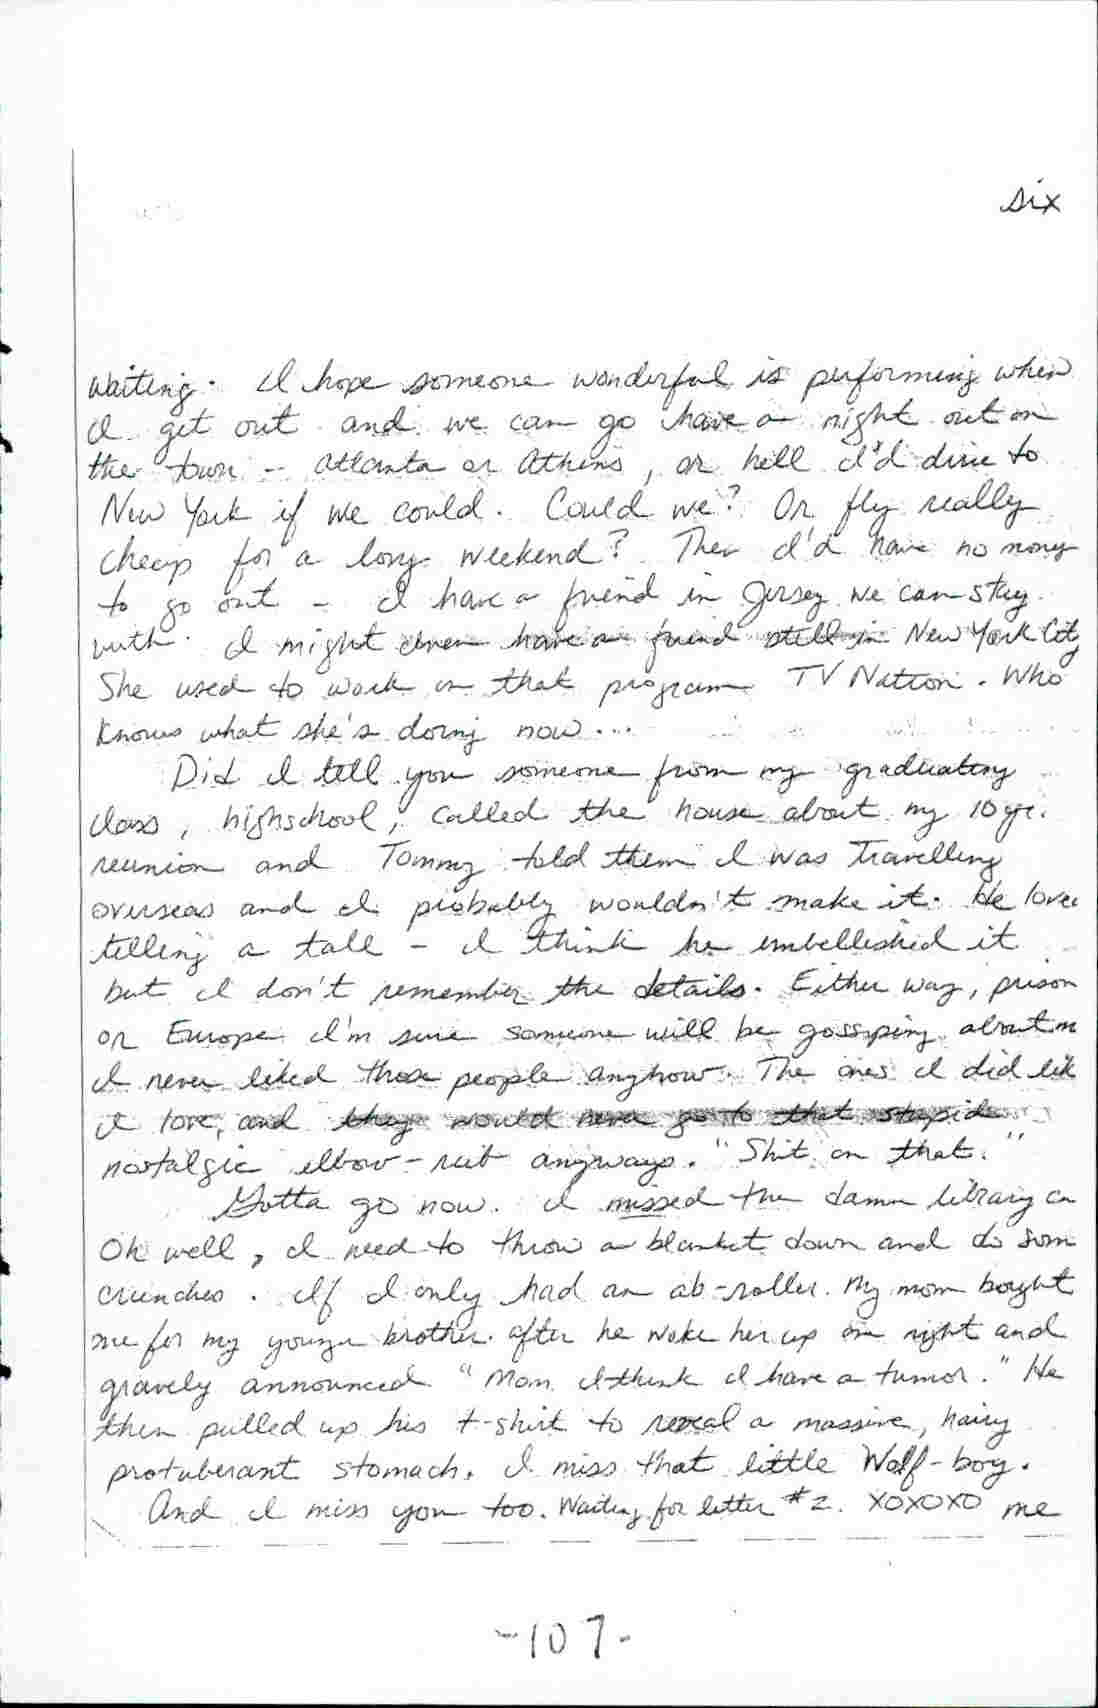 six
waiting. I hope someone wonderful is performing when
I get out and we can go have a night out on
the town - Atlanta or Athens, or hell I'd drive to
New York if we could. Could we? Or fly really
cheap for a long weekend? Then I'd have no money
to go out - I have a friend in Jersey we can stay
with. I might even have a friend still in New York City
She used to work on that program TV Nation. Who
knows what she's doing now...
Did I tell you someone from my graduating
class, highschool, called the house about my 10 yr.
reunion and Tommy told them I was travelling
overseas and I probably wouldn't make it. He loves
telling a tall - I think he embellished it
but I don't remember the details. Either way, prison
or Europe I'm sure someone will be gossiping about m
I never liked those people anyhow. The ones I did lik
I love, and they would never go to that stupid
nostalgic elbow-rub anyways. "Shit on that."
Gotta go now. I missed the damn library ca
Oh well, I need to throw a blanket down and do som
crunches. If I only had an ab-roller. My mom bought
one for my younger brother after he woke her up one night and
gravely announced "Mom I think I have a tumor." He
then pulled up his t-shirt to reveal a massive, hairy
protuberant stomach. I miss that little Wolf-boy.
And I miss you too. Waiting for letter #2. XOXOXO me
-107-